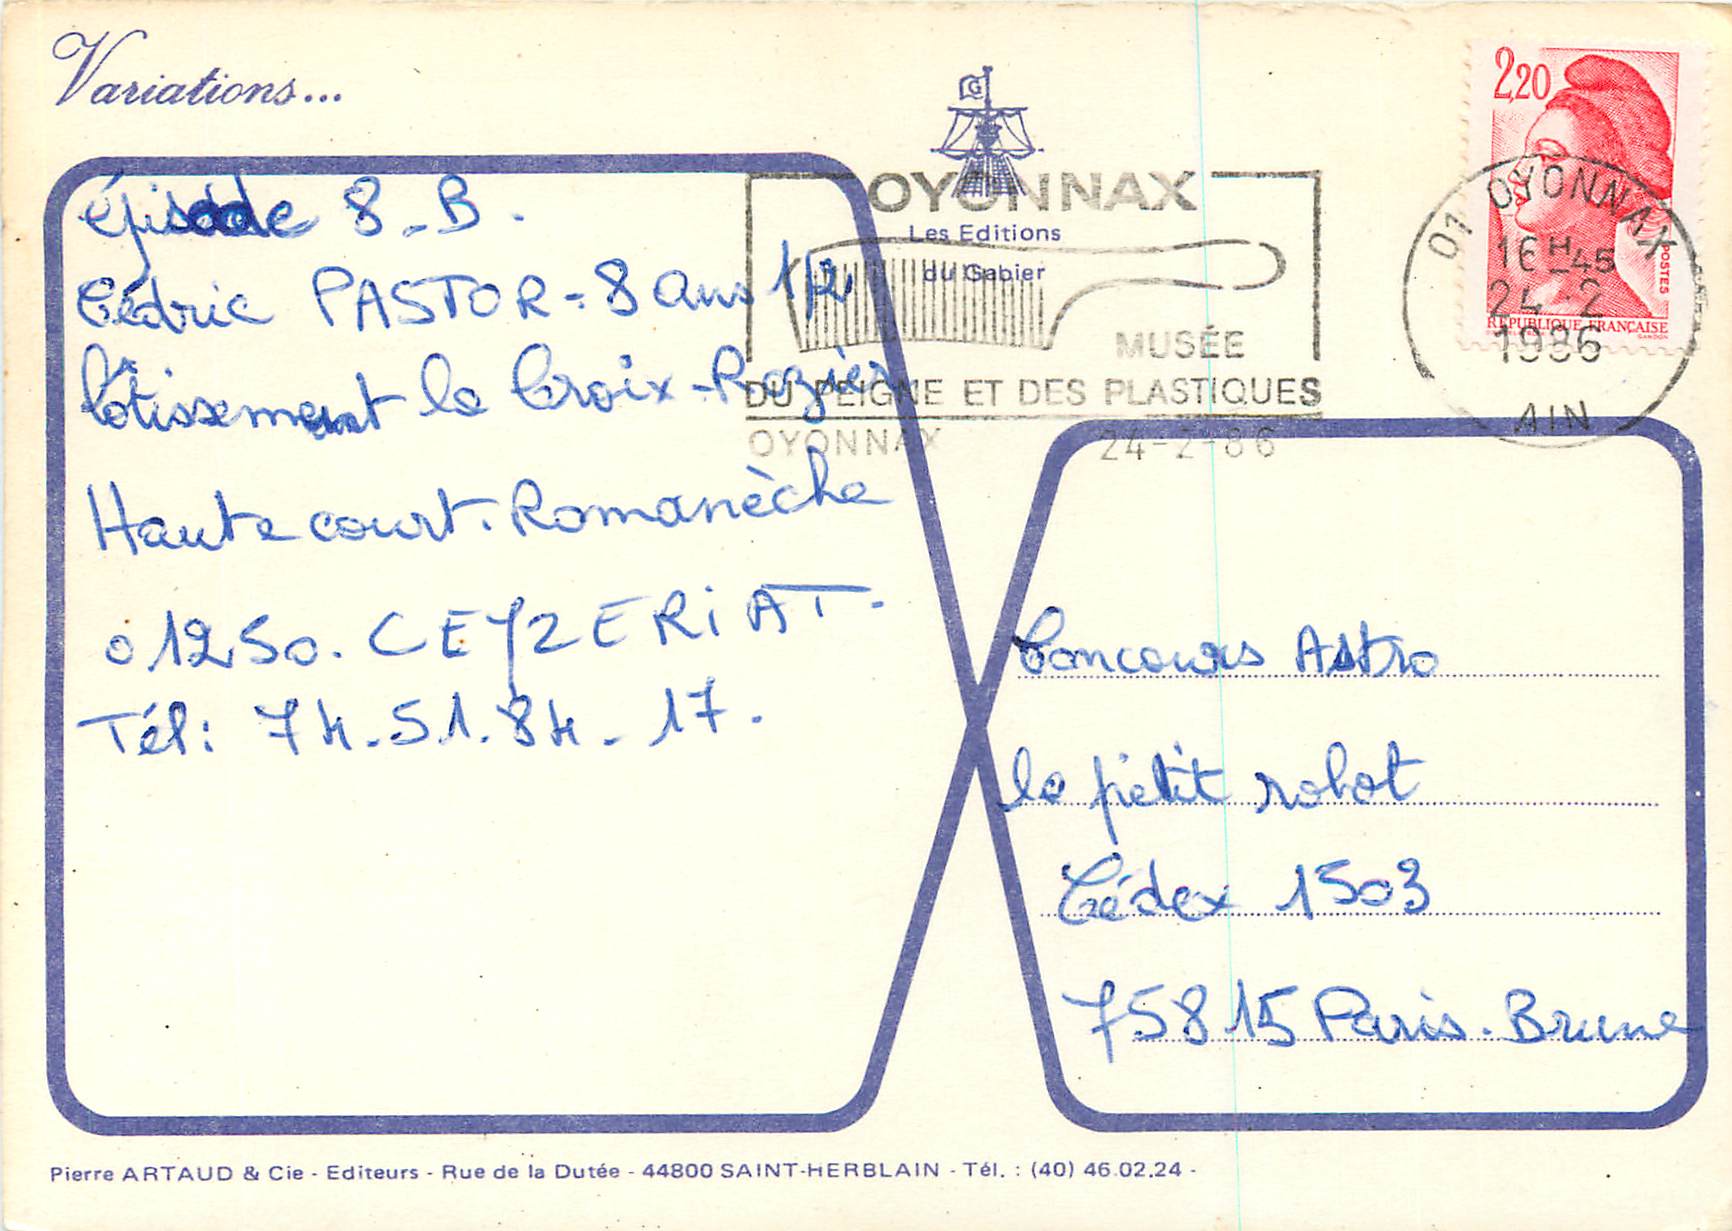 Variations...
épisode 8_B.
Cédric PASTOR - 8 ans 1/2
lôtissement la Croix-Rozier
Hautecourt. Romanèche
01250. CEYZERIAT.
Tél: 74.51.84.17.
G
OYONNAX
Les Editions
du Gabier
MUSÉE
DU PEIGNE ET DES PLASTIQUES
OYONNAX 24-2-86
2,20
POSTES
REPUBLIQUE FRANÇAISE
GANDON
01 OYONNAX
16H-45
24-2
1986
AIN
Concours Astro
le petit robot
Cédex 1503
75815 Paris. Brune
Pierre ARTAUD & Cie - Editeurs - Rue de la Dutée - 44800 SAINT-HERBLAIN - Tél. : (40) 46.02.24 -